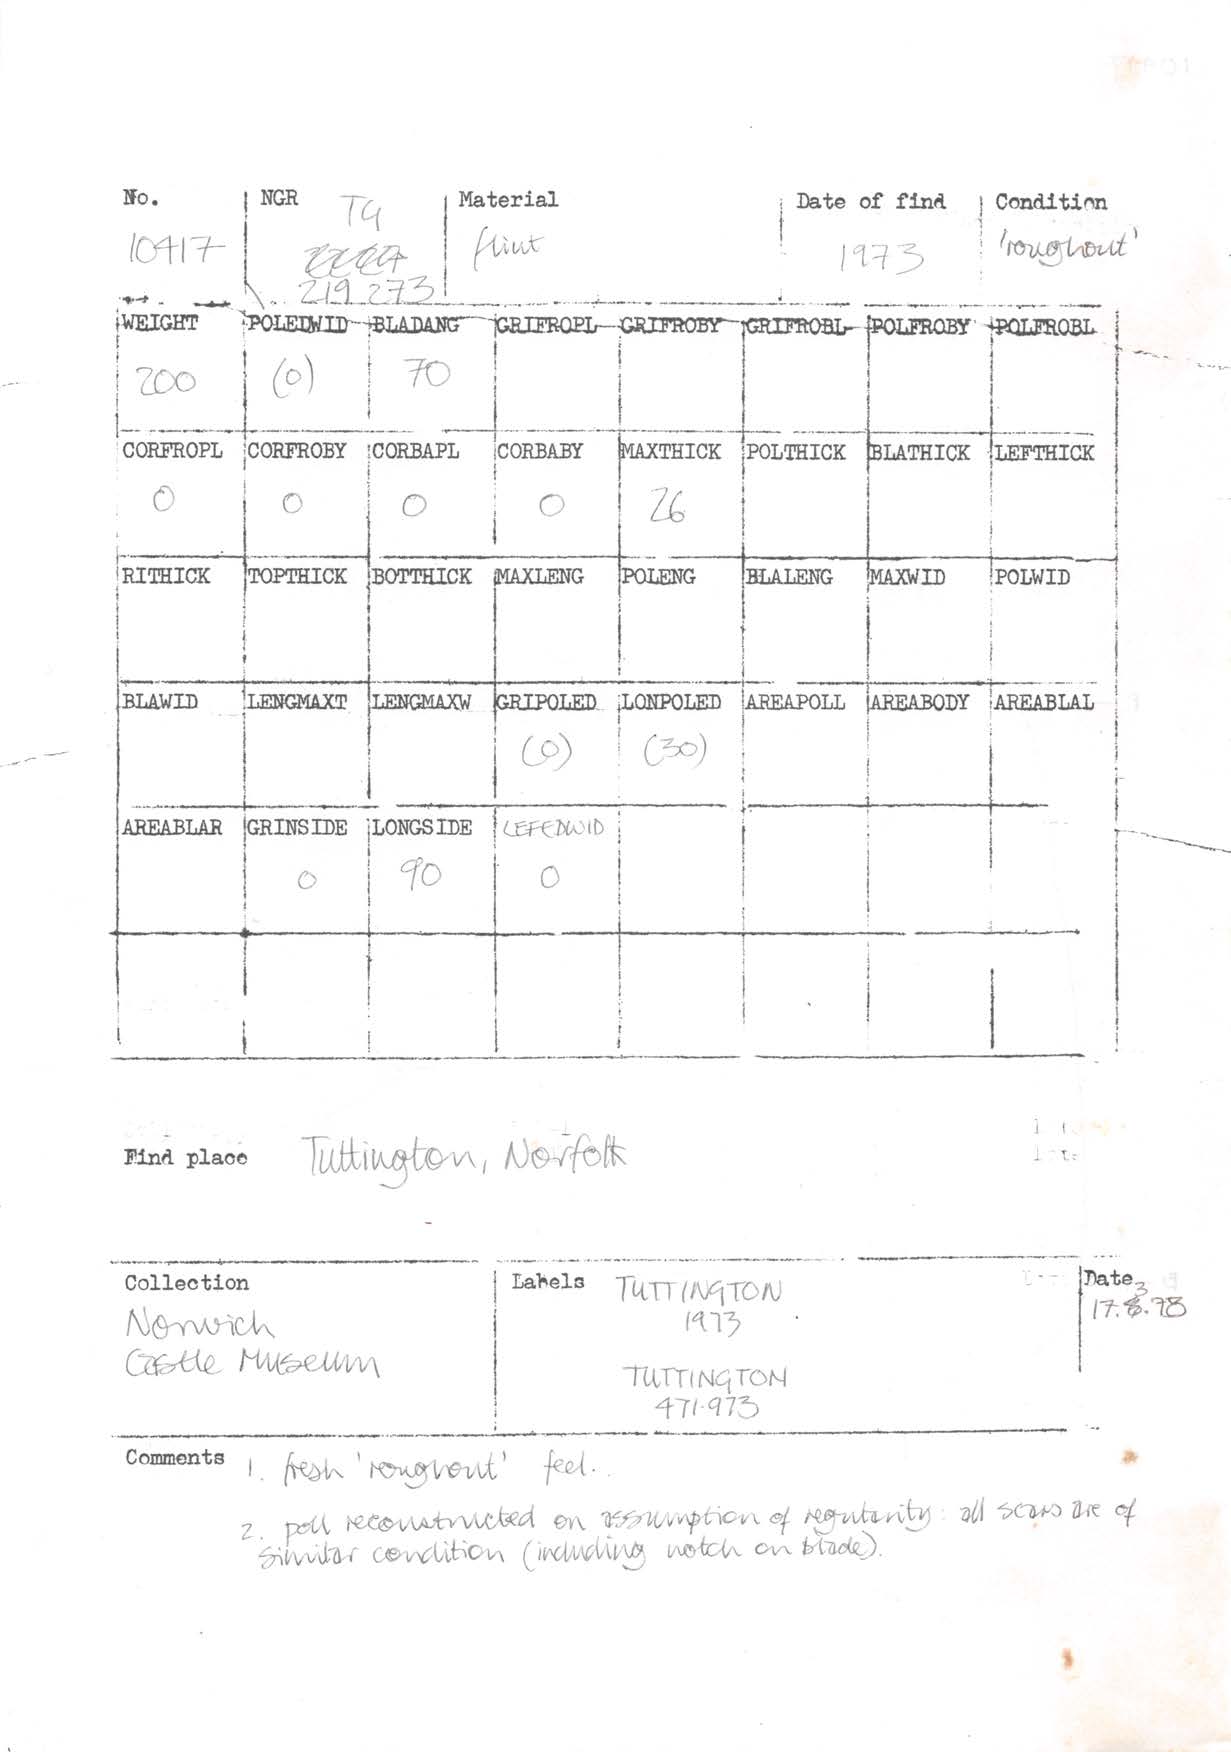 No. NGR Material Date of find Condition
TG
10417 flint 1973 'roughout'
219 273
WEIGHT POLEDWID BLADANG GRIFROPL GRIFROBY GRIFROBL POLFROBY POLFROBL
200 (0) 70
CORFROPL CORFROBY CORBAPL CORBABY MAXTHICK POLTHICK BLATHICK LEFTHICK
0 0 0 0 26
RITHICK TOPTHICK BOTTHICK MAXLENG POLENG BLALENG MAXWID POLWID
BLAWID LENGMAXT LENGMAXW GRIPOLED LONPOLED AREAPOLL AREABODY AREABLAL
(0) (30)
AREABLAR GRINSIDE LONGSIDE LEFEDWID
0 90 0
Find place Tuttington, Norfolk
Collection Labels TUTTINGTON Date
1973 17.3.78
Norwich
Castle Museum
TUTTINGTON
471.973
Comments 1. fresh 'roughout' feel.
2. poll reconstructed on assumption of regularity: all scars are of
similar condition (including notch on blade).